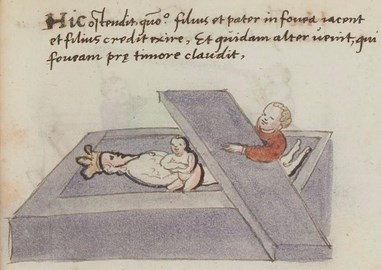 Hic ostendit, quo° filius et pater in fovea iacent
et filius credit exire, Et quidam alter venit, qui
foveam prę timore claudit,